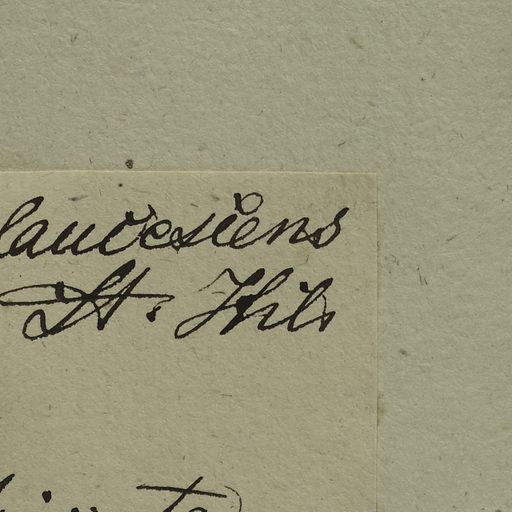 laucesiens
St. Hil.